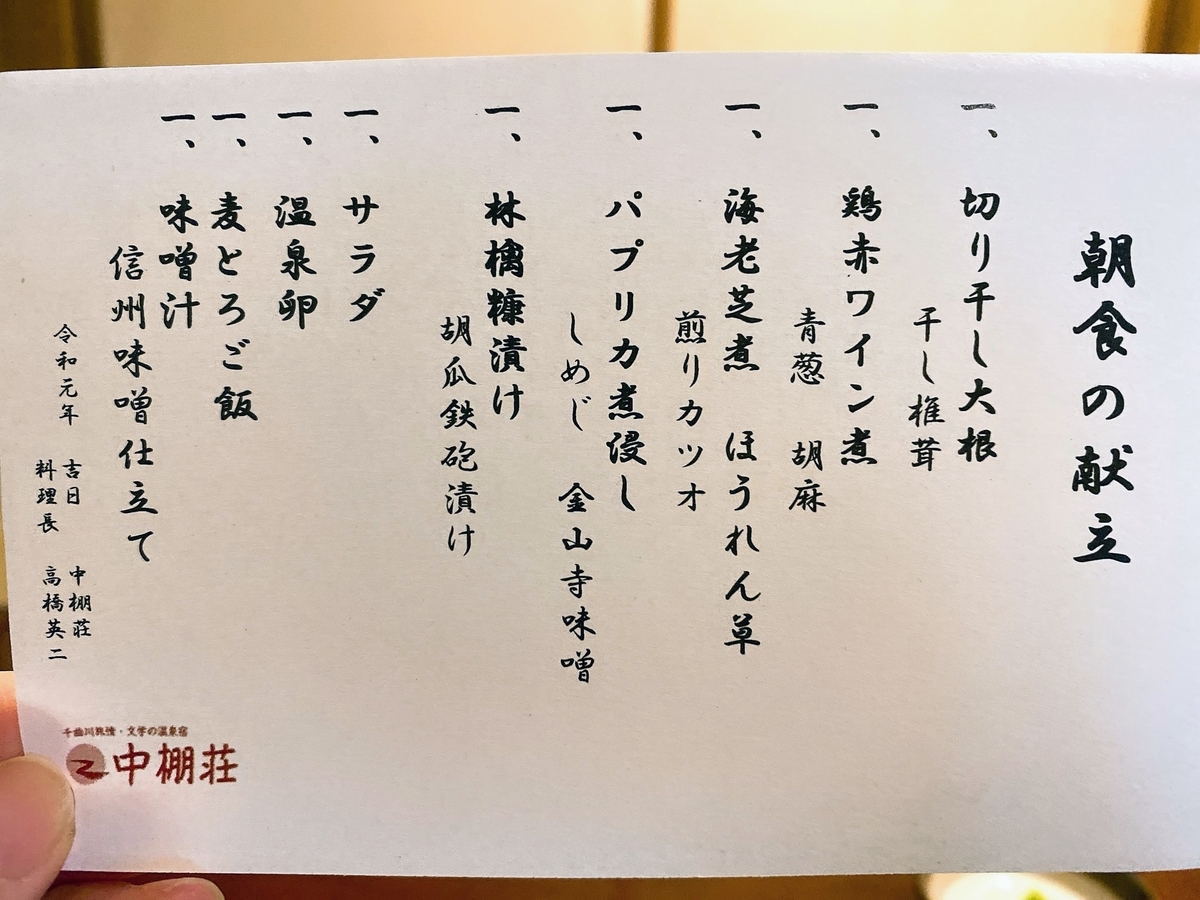 朝食の献立
一、切り干し大根
干し椎茸
一、鶏赤ワイン煮
青葱 胡麻
一、海老芝煮 ほうれん草
煎りカツオ
一、パプリカ煮浸し
しめじ 金山寺味噌
一、林檎糠漬け
胡瓜鉄砲漬け
一、サラダ
一、温泉卵
一、麦とろご飯
一、味噌汁
信州味噌仕立て
令和元年 吉日 中棚荘
料理長 高橋英二
千曲川旅情・文学の温泉宿
中棚荘